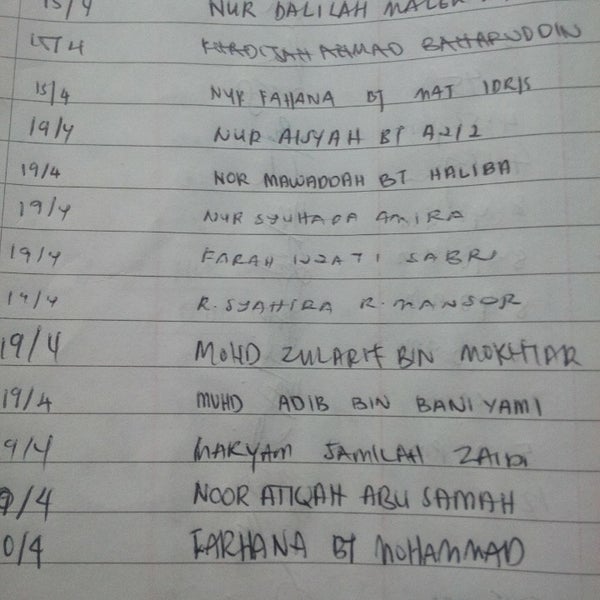 15/4 NUR DALILAH MALEK
15/4 KHADIJAH AHMAD BAHARUDDIN
15/4 NUR FAHANA BT MAT IDRIS
19/4 NUR AISYAH BT AZIZ
19/4 NOR MAWADDAH BT HALIBA
19/4 NUR SYUHADA AMIRA
19/4 FARAH IZZATI SABRI
19/4 R. SYAHIRA R. MANSOR
19/4 MOHD ZULARIF BIN MOKHTAR
19/4 MUHD ADIB BIN BANIYAMI
9/4 MARYAM JAMILAH ZAIDI
/4 NOOR ATIQAH ABU SAMAH
0/4 FARHANA BT MOHAMMAD